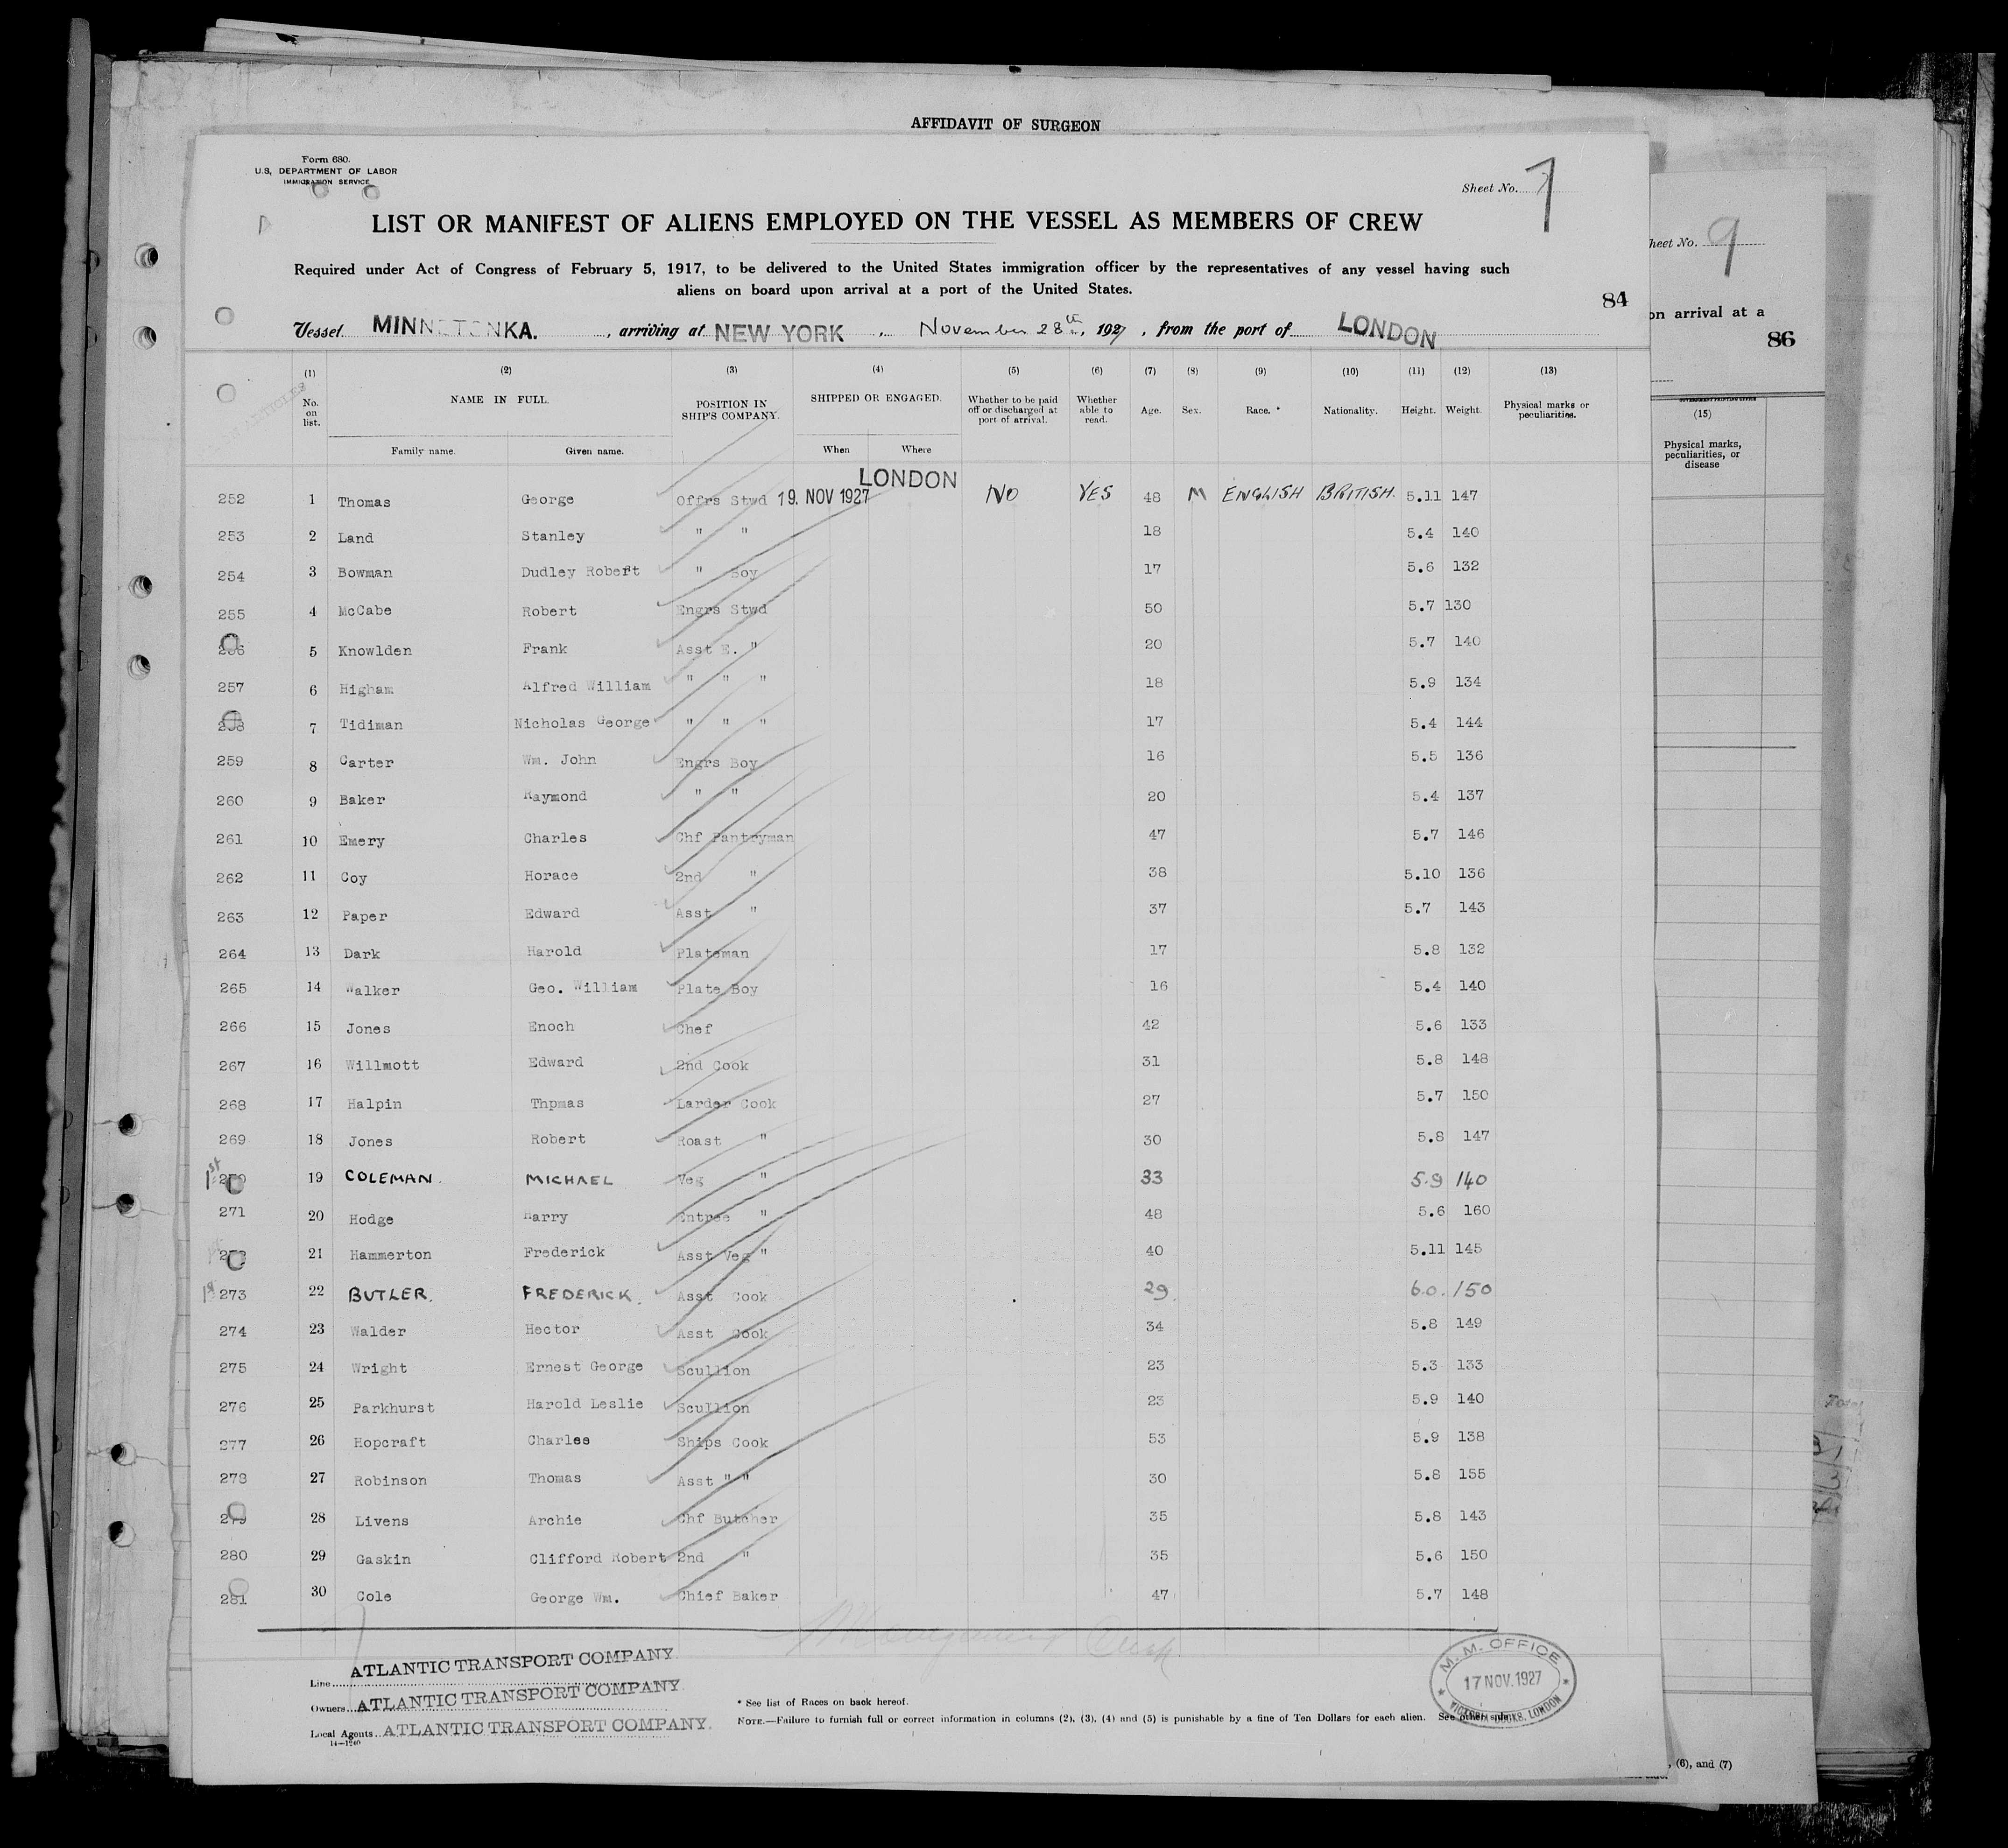 AFFIDAVIT OF SURGEON
Form 680.
U.S. DEPARTMENT OF LABOR
IMMIGRATION SERVICE
Sheet No. 7
LIST OR MANIFEST OF ALIENS EMPLOYED ON THE VESSEL AS MEMBERS OF CREW
Required under Act of Congress of February 5, 1917, to be delivered to the United States immigration officer by the representatives of any vessel having such
aliens on board upon arrival at a port of the United States.
84
Vessel MINNETONKA. , arriving at NEW YORK , November 28th, 1927 , from the port of LONDON
(1) (2) (3) (4) (5) (6) (7) (8) (9) (10) (11) (12) (13)
No. on list. NAME IN FULL. POSITION IN SHIP'S COMPANY. SHIPPED OR ENGAGED. Whether to be paid off or discharged at port of arrival. Whether able to read. Age. Sex. Race. * Nationality. Height. Weight. Physical marks or peculiarities.
Family name. Given name. When Where
LONDON
252 1 Thomas George Offrs Stwd 19. NOV 1927 NO YES 48 M ENGLISH BRITISH. 5.11 147
253 2 Land Stanley " " 18 5.4 140
254 3 Bowman Dudley Robert " Boy 17 5.6 132
255 4 McCabe Robert Engrs Stwd 50 5.7 130
256 5 Knowlden Frank Asst E. " 20 5.7 140
257 6 Higham Alfred William " " " 18 5.9 134
258 7 Tidiman Nicholas George " " " 17 5.4 144
259 8 Carter Wm. John Engrs Boy 16 5.5 136
260 9 Baker Raymond " " 20 5.4 137
261 10 Emery Charles Chf Pantryman 47 5.7 146
262 11 Coy Horace 2nd " 38 5.10 136
263 12 Paper Edward Asst " 37 5.7 143
264 13 Dark Harold Plateman 17 5.8 132
265 14 Walker Geo. William Plate Boy 16 5.4 140
266 15 Jones Enoch Chef 42 5.6 133
267 16 Willmott Edward 2nd Cook 31 5.8 148
268 17 Halpin Thpmas Larder Cook 27 5.7 150
269 18 Jones Robert Roast " 30 5.8 147
1st 270 19 COLEMAN. MICHAEL Veg " 33 5.9 140
271 20 Hodge Harry Entree " 48 5.6 160
272 21 Hammerton Frederick Asst Veg " 40 5.11 145
273 22 BUTLER. FREDERICK. Asst Cook 29. 6.0. 150
274 23 Walder Hector Asst Cook 34 5.8 149
275 24 Wright Ernest George Scullion 23 5.3 133
276 25 Parkhurst Harold Leslie Scullion 23 5.9 140
277 26 Hopcraft Charles Ships Cook 53 5.9 138
278 27 Robinson Thomas Asst " " 30 5.8 155
279 28 Livens Archie Chf Butcher 35 5.8 143
280 29 Gaskin Clifford Robert 2nd " 35 5.6 150
281 30 Cole George Wm. Chief Baker 47 5.7 148
Line ATLANTIC TRANSPORT COMPANY
Owners ATLANTIC TRANSPORT COMPANY
Local Agents ATLANTIC TRANSPORT COMPANY.
14—1240
* See list of Races on back hereof.
NOTE.—Failure to furnish full or correct information in columns (2), (3), (4) and (5) is punishable by a fine of Ten Dollars for each alien. See other side.
M. M. OFFICE
17 NOV. 1927
VICTORIA DOCKS, LONDON
heet No. 9
on arrival at a
86
(15)
Physical marks, peculiarities, or disease
, (6), and (7)